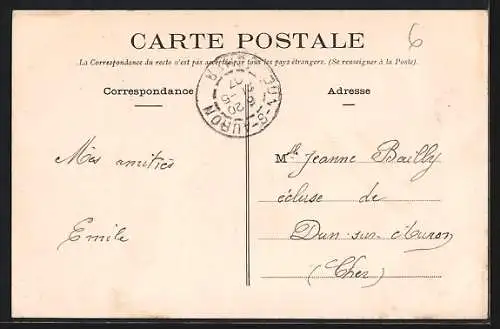 CARTE POSTALE
La Correspondance du recto n'est pas acceptée par tous les pays étrangers. (Se renseigner à la Poste).
Correspondance
Adresse
DUN-S-AURON
20
07
6
Mes amitiés
Emile
Mlle Jeanne Bailly
écluse de
Dun-sur-Auron
(Cher)